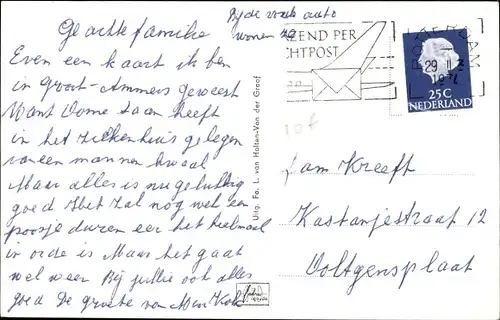 Geachte familie
Bij de vaste auto
wonen
Even een kaart ik ben
in Groot-Ammers geweest
Want Oome Daan heeft
in het ziekenhuis gelegen
van een mannen kwaal
Maar alles is nu gelukkig
goed Het zal nog wel een
poosje duren eer het helemaal
in orde is Maar het gaat
wel weer Bij jullie ook alles
goed De groete van
Uitg. Fa. L. van Halten-Van der Graaf
ZEND PER
CHTPOST
ROTTERDAM
29 II
25C
NEDERLAND
fam Kreeft
Kastanjestraat 12
Voltgensplaat